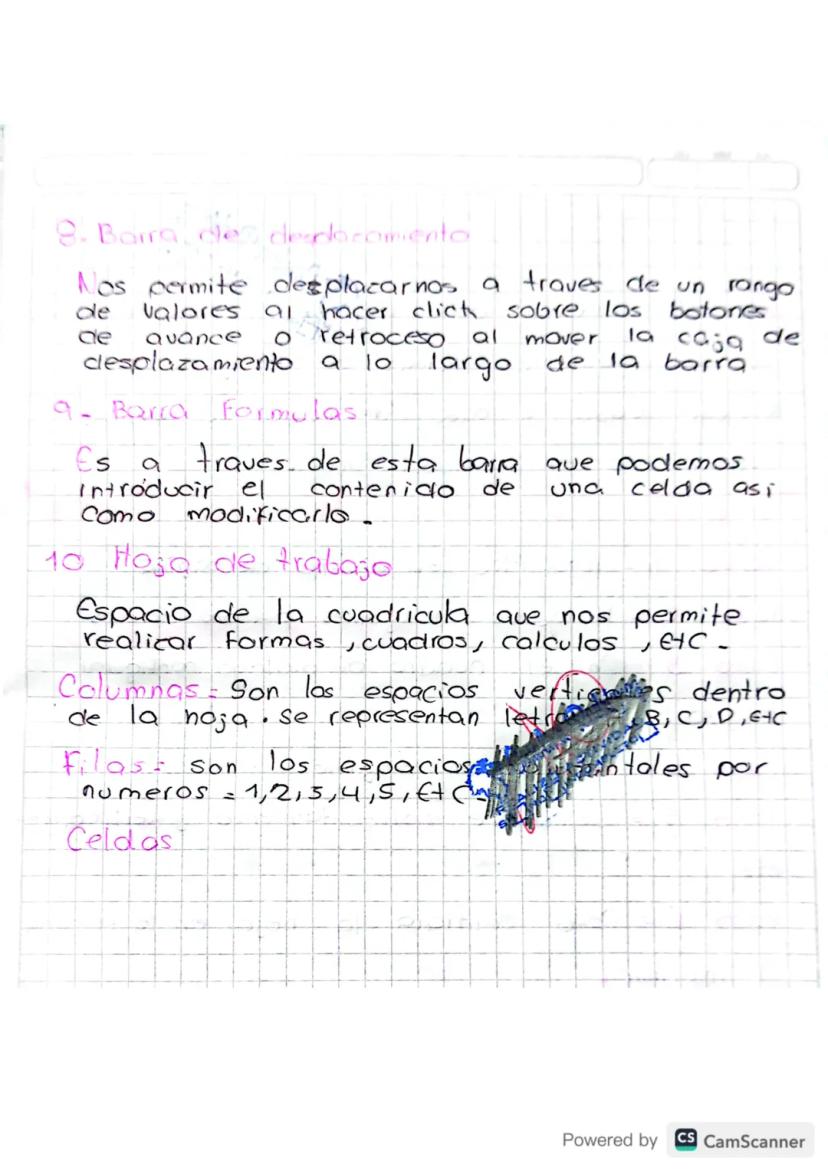 8. Barra de desplacamiento
Nos permite desplacarnos a traves de un rango
de valores al hacer click sobre los botones
de avance o retroceso al mover la caja de
desplazamiento a lo largo de la barra
9- Barra Formulas
Es a traves de esta barra que podemos
introducir el contenido de una celda asi
como modificarlo.
10 Hoja de trabajo
Espacio de la cuadricula que nos permite
realizar formas, cuadros, calculos, etc.
Columnas = Son los espacios dentro
de la hoja. se representan B, C, D, etc
Filas = son los espacios por
numeros = 1,2,3,4,5, etc.
Celdas
Powered by CS CamScanner